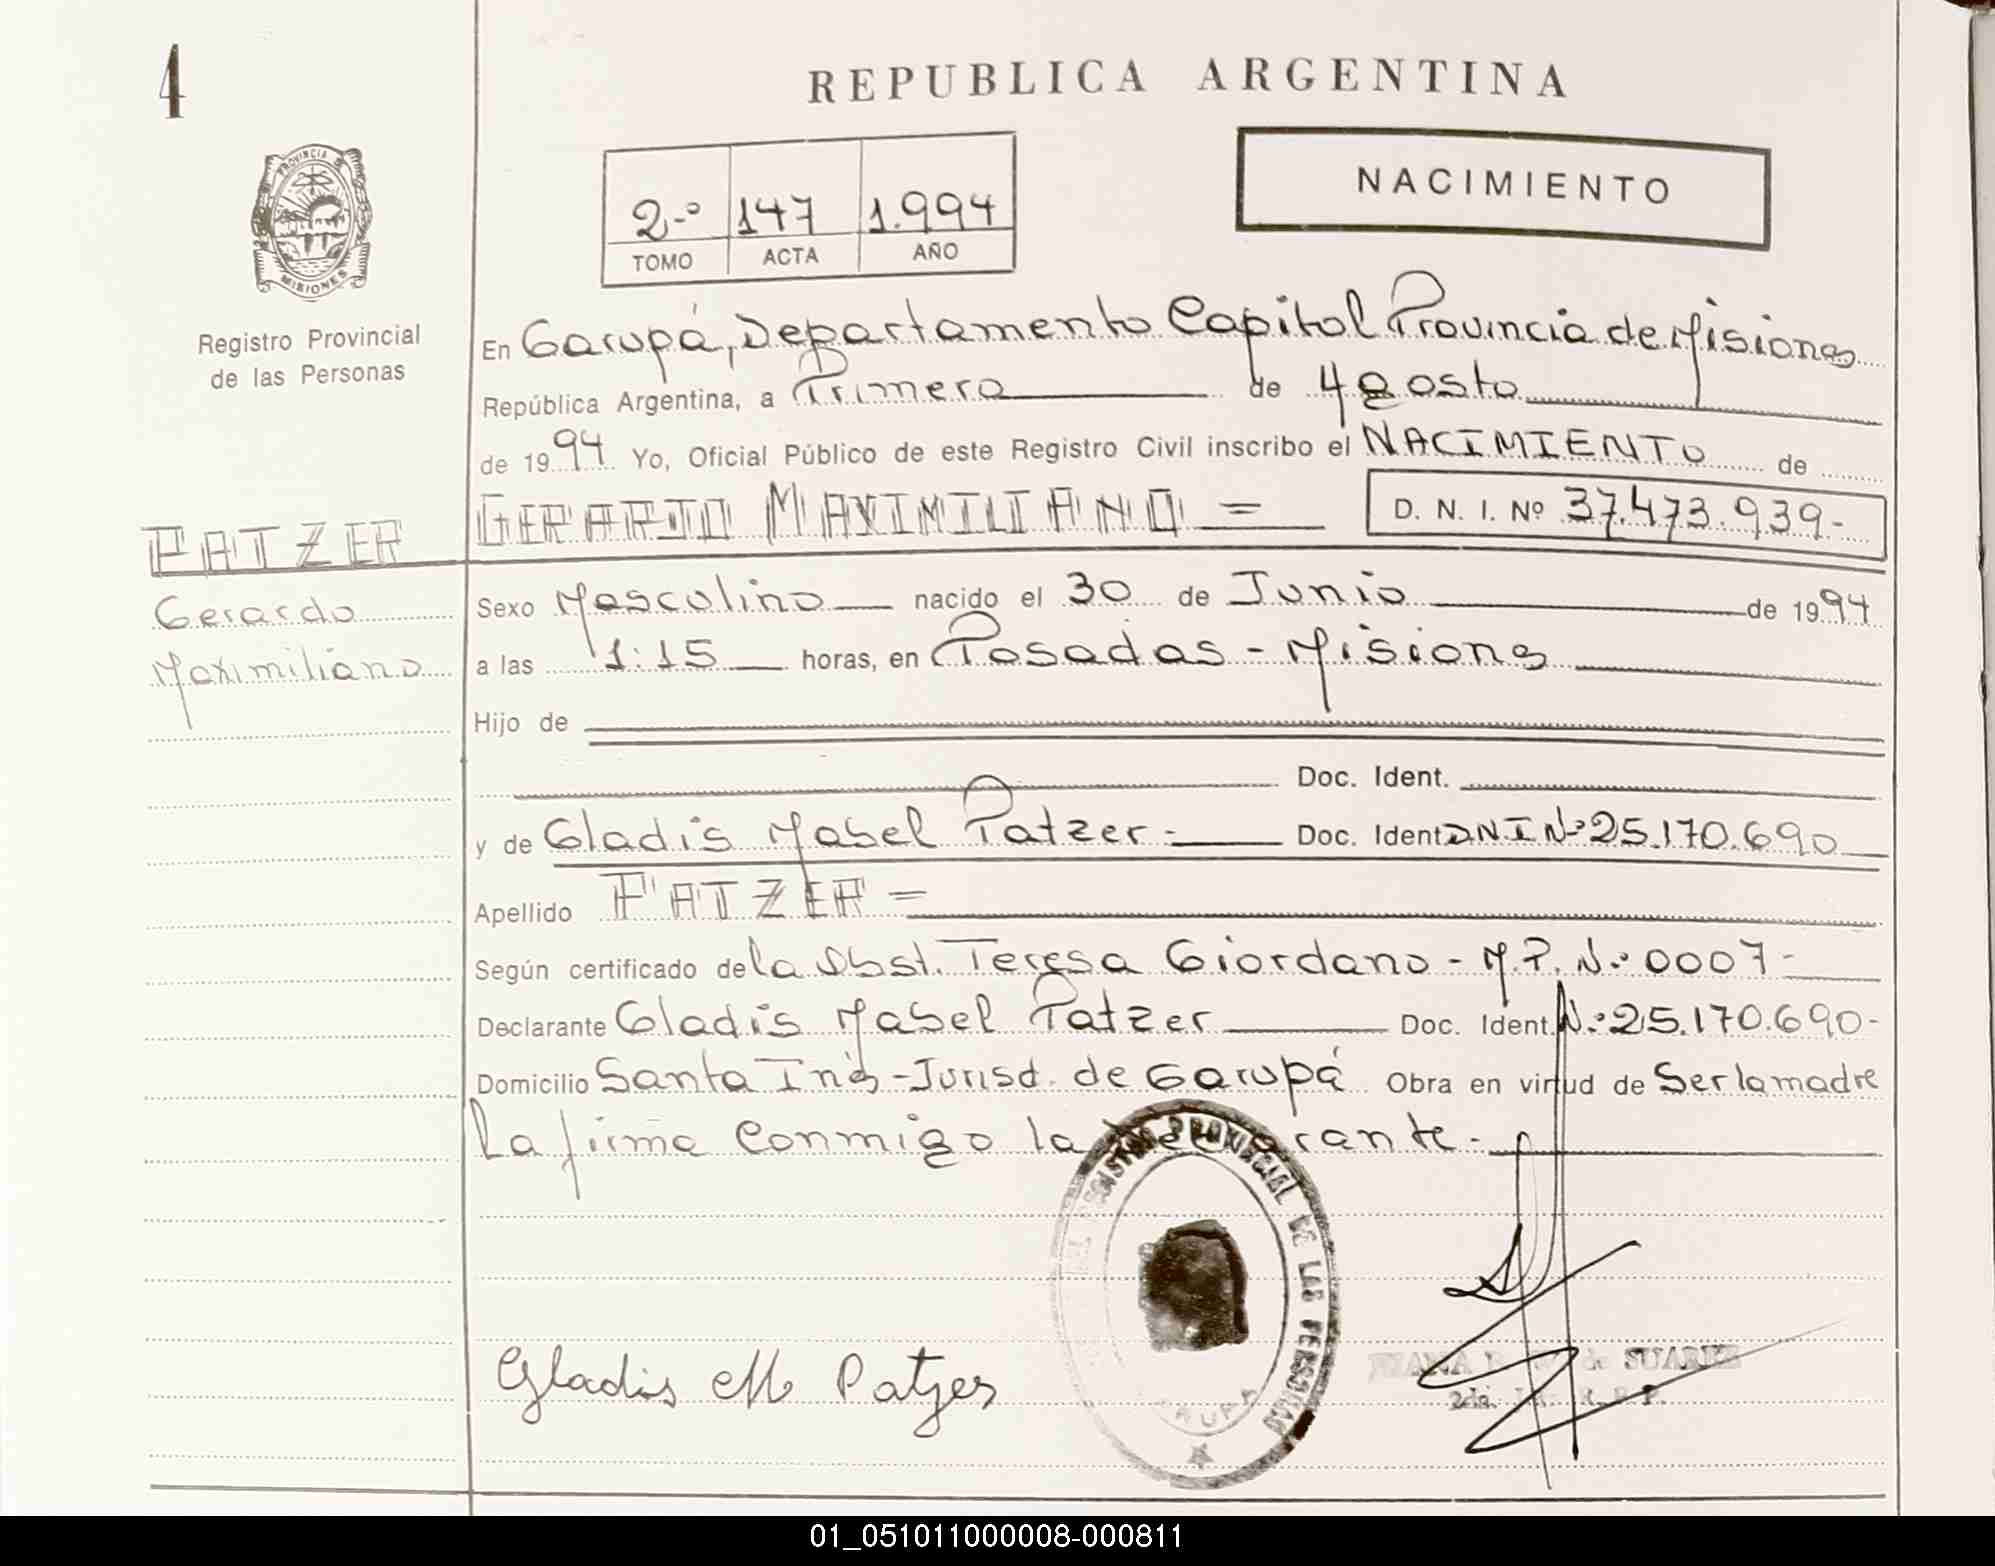 4
REPUBLICA ARGENTINA
PROVINCIA DE
MISIONES
Registro Provincial
de las Personas
2-º 147 1.994
TOMO ACTA AÑO
NACIMIENTO
En Garupá, Departamento Capital Provincia de Misiones
República Argentina, a Primero de Agosto
de 1994 Yo, Oficial Público de este Registro Civil inscribo el NACIMIENTO de
GERARDO MAXIMILIANO = D. N. I. Nº 37.473.939-
PATZER
Gerardo
Maximiliano
Sexo Masculino nacido el 30 de Junio de 1994
a las 1:15 horas, en Posadas - Misiones
Hijo de
Doc. Ident.
y de Gladis Mabel Patzer- Doc. Ident DNI Nº 25.170.690
Apellido PATZER =
Según certificado de la Obst. Teresa Giordano - M.P. Nº 0007-
Declarante Gladis Mabel Patzer Doc. Ident. Nº 25.170.690-
Domicilio Santa Inés - Jurisd. de Garupá Obra en virtud de Ser la madre
La firma conmigo la rante.-
REGISTRO PROVINCIAL DE LAS PERSONAS
Gladis M Patzer
de SUAREZ
01_051011000008-000811